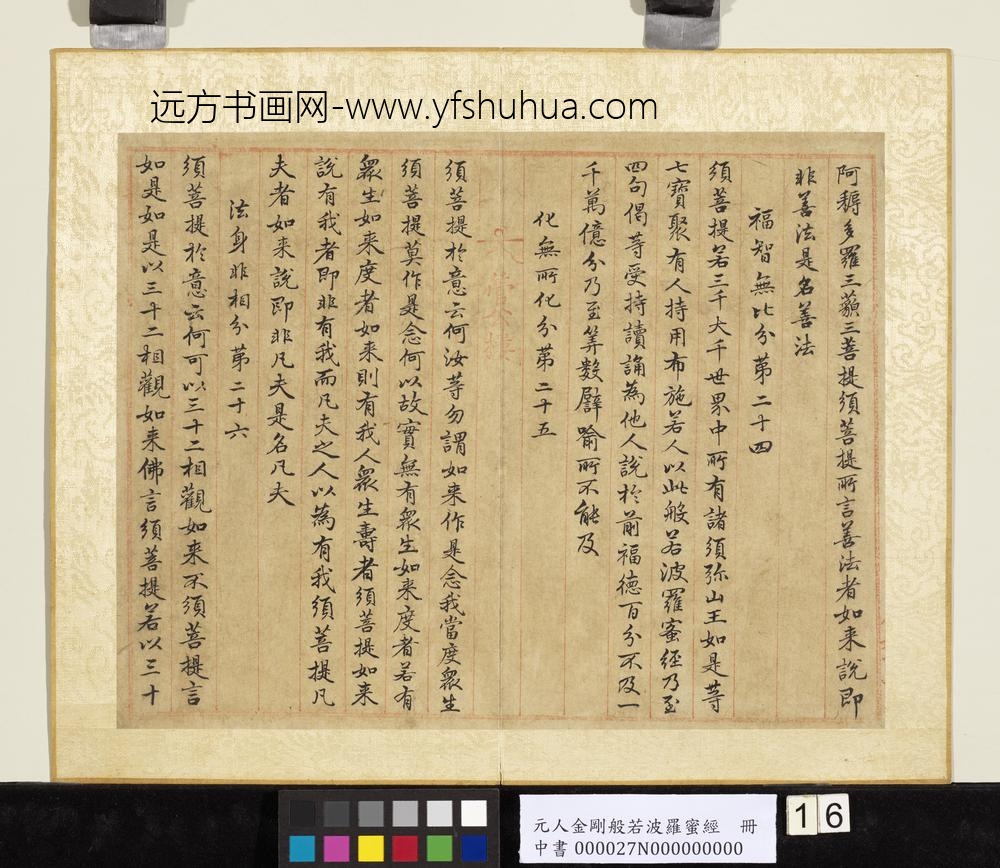 远方书画网-www.yfshuhua.com
阿耨多羅三藐三菩提須菩提所言善法者如来說即
非善法是名善法
福智無比分第二十四
須菩提若三千大千世界中所有諸須弥山王如是等
七寶聚有人持用布施若人以此般若波羅蜜經乃至
四句偈等受持讀誦為他人說於前福德百分不及一
千萬億分乃至筭數譬喻所不能及
化無所化分第二十五
須菩提於意云何汝等勿謂如来作是念我當度眾生
須菩提莫作是念何以故實無有眾生如来度者若有
眾生如来度者如来則有我人眾生壽者須菩提如来
說有我者即非有我而凡夫之人以為有我須菩提凡
夫者如来說即非凡夫是名凡夫
法身非相分第二十六
須菩提於意云何可以三十二相觀如来不須菩提言
如是如是以三十二相觀如来佛言須菩提若以三十
元人金剛般若波羅蜜經 冊
中書 000027N000000000
16